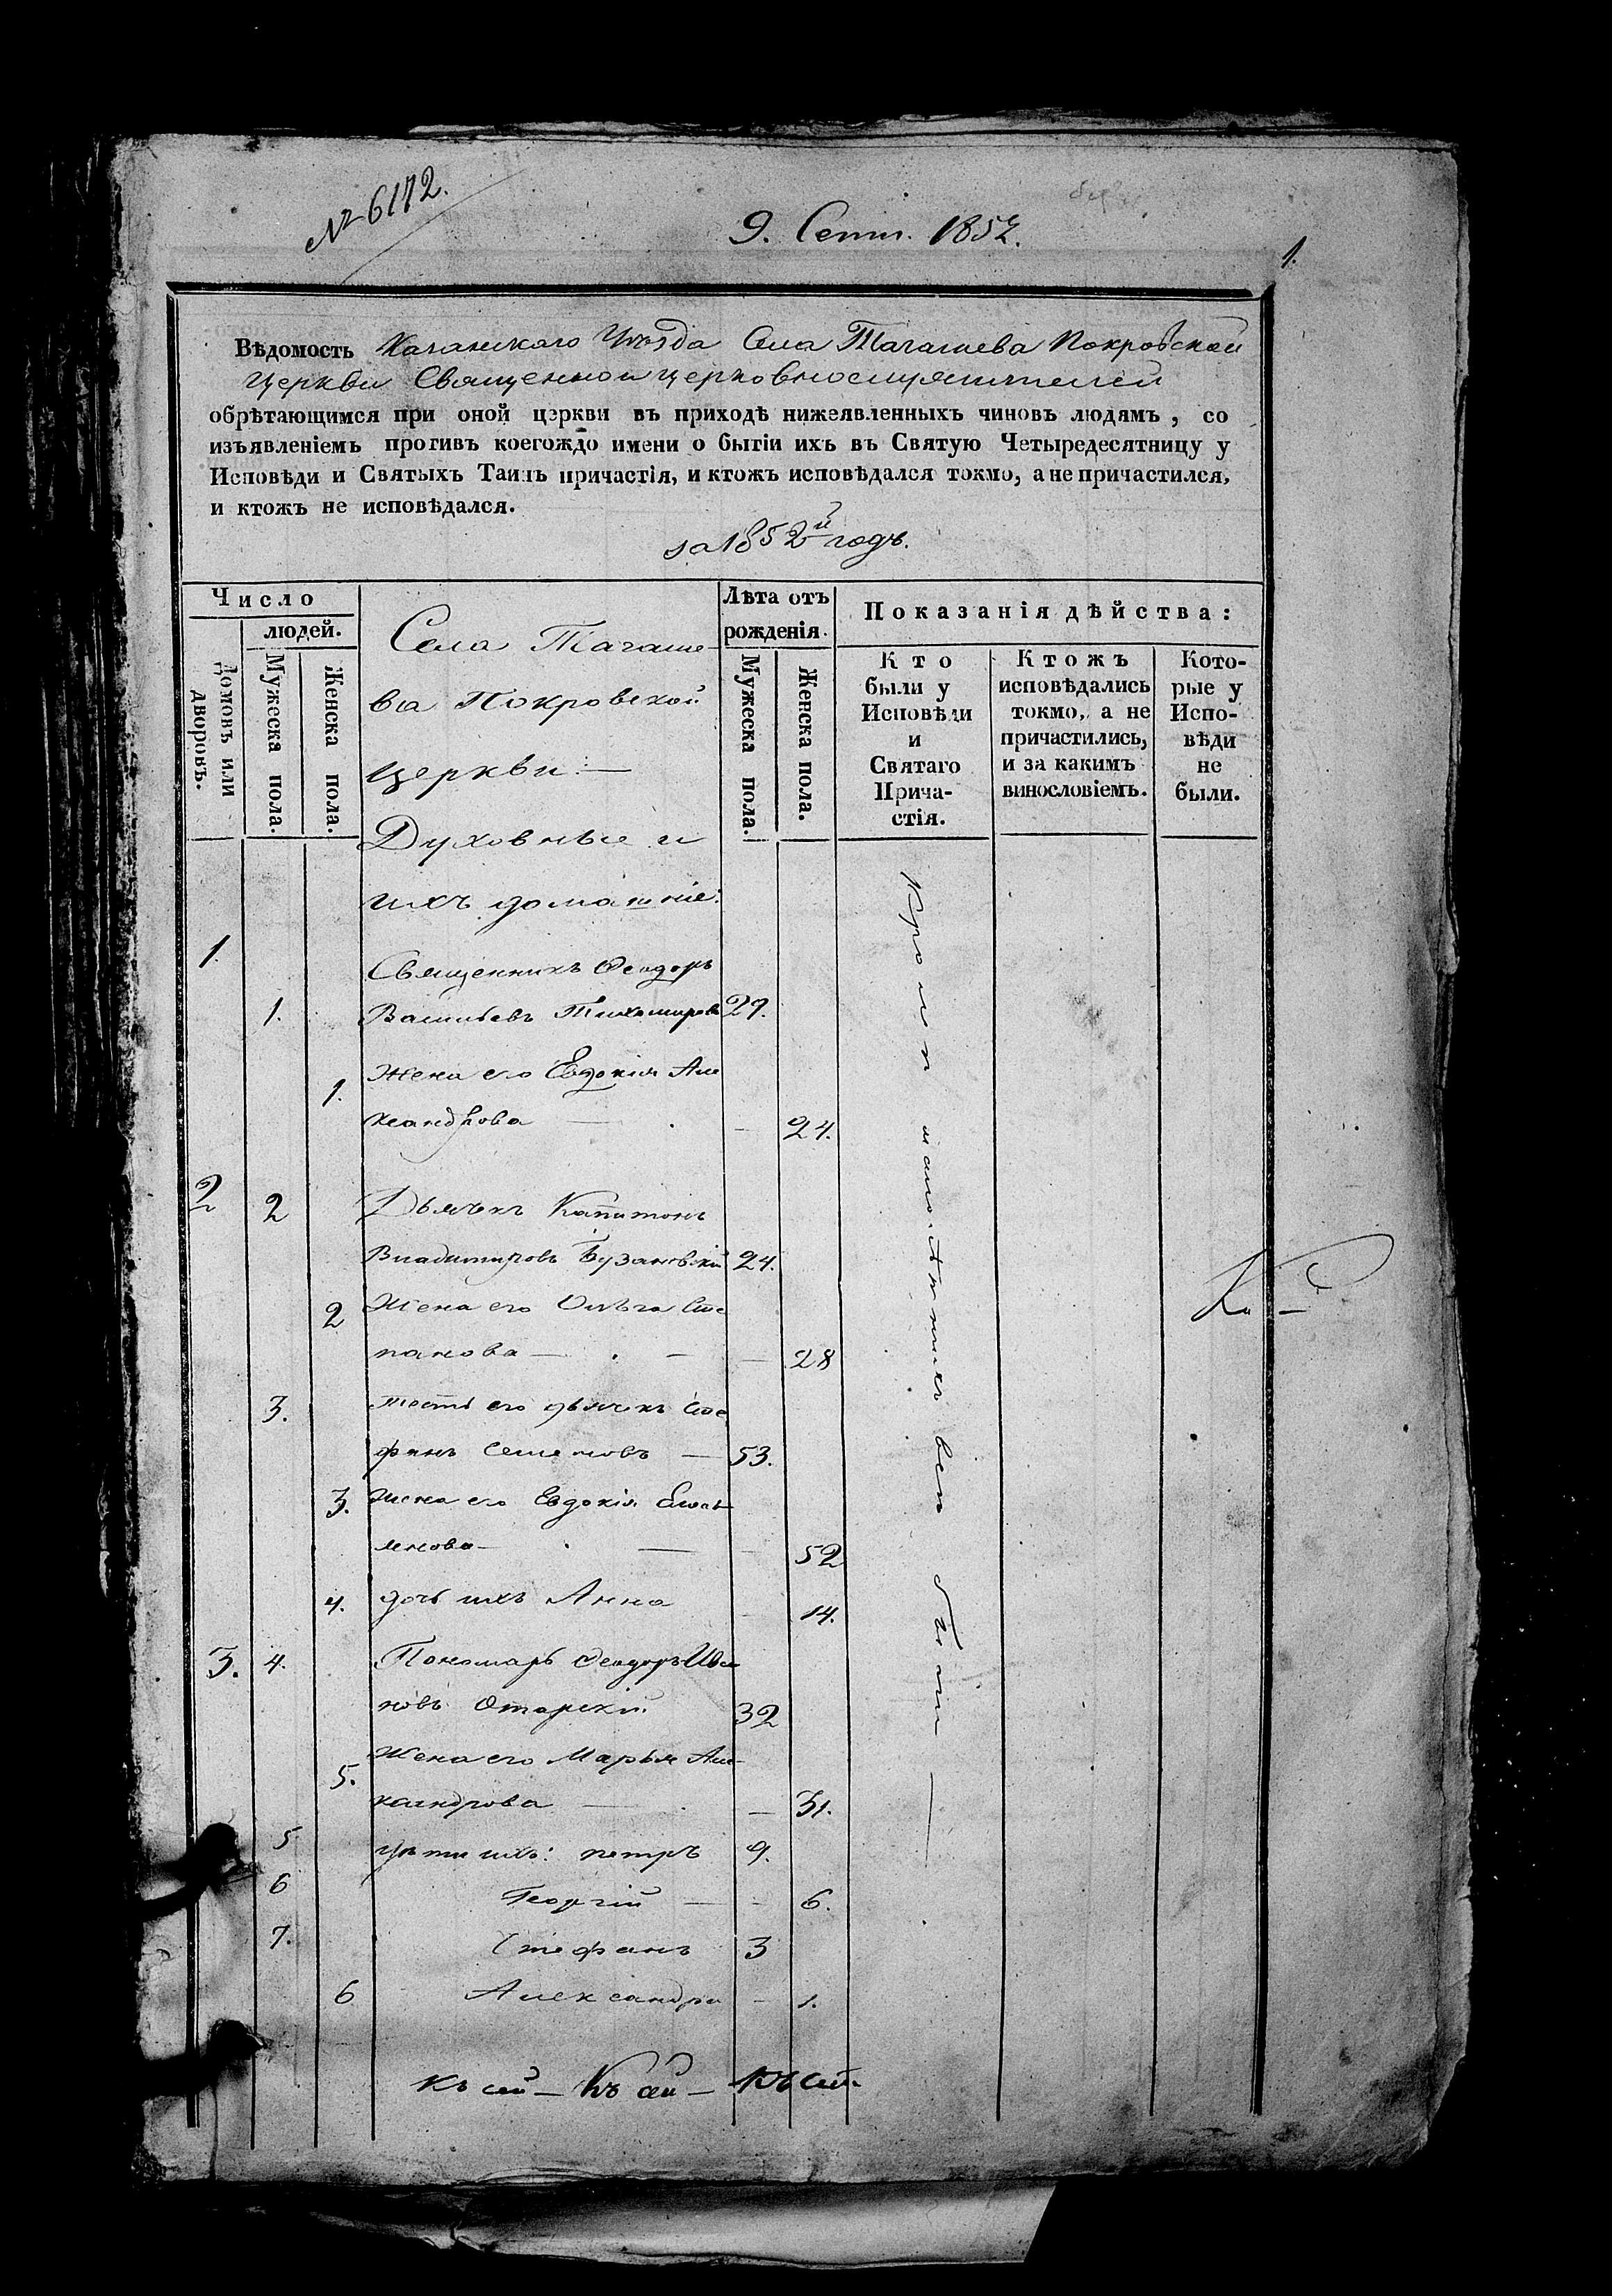 № 6172.
9. Сент. 1852.
1.
Вѣдомость Казанскаго Уѣзда Села Тагашева Покровской
церкви Священноицерковнослужителей
обрѣтающимся при оной церкви въ приходѣ нижеявленныхъ чиновъ людямъ, со
изъявленіемъ противъ коегождо имени о бытіи ихъ въ Святую Четыредесятницу у
Исповѣди и Святыхъ Таинъ причастія, и ктожъ исповѣдался токмо, а не причастился,
и ктожъ не исповѣдался.
за 1852й годъ.
Число
людей.
Домовъ или дворовъ.
Мужеска пола.
Женска пола.
Лѣта отъ
рожденія.
Мужеска пола.
Женска пола.
Показанія дѣйства:
Кто
были у
Исповѣди
и
Святаго
Прича-
стія.
Ктожъ
исповѣдались
токмо, а не
причастились,
и за какимъ
винословіемъ.
Кото-
рые у
Испо-
вѣди
не
были.
Села Тагаше-
ва Покровской
церкви:—
Духовные и
ихъ домашніе:
1.
Священникъ Ѳеодоръ
1. Васильевъ Тихомировъ 29.
1. Жена его Евдокія Але
ксандрова — 24.
2 2 Дьячекъ Капитонъ
Владимировъ Бузановскій 24.
2 Жена его Ольга Сте
панова — 28
3. тесть его дьячекъ Сте
фанъ Семеновъ — 53.
3. Жена его Евдокія Емель
янова — 52
4. дочь ихъ Анна 14.
3. 4. Пономарь Ѳеодоръ Ива
новъ Отарскій 32
5. Жена его Марья Але-
ксандрова — 31.
5 Дѣти ихъ: петръ 9.
6 Георгій — 6.
7. Стефанъ 3
6 Александра — 1.
Кромѣ малолѣтнихъ всѣ были —
Къ сей — Къ сей — Къ сей